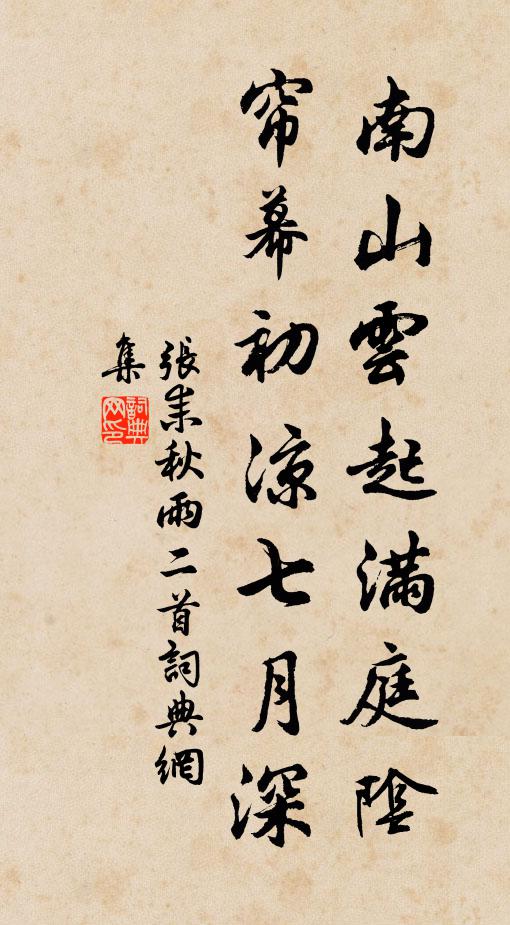 南山雲起滿庭陰
帘幕初涼七月深
張耒秋雨二首詞典網
集
詞典网印